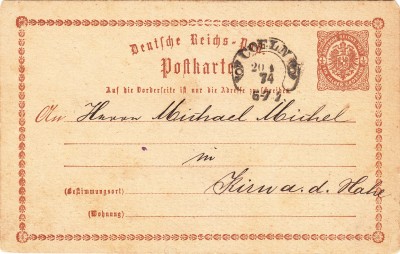 Deutsche Reichs-Post
Postkarte
COELN
20 4
74
6-7
Auf die Vorderseite ist nur die Adresse zu schreiben
An Herrn Michael Michel
in
Kirn a. d. Nahe
(Bestimmungsort)
(Wohnung)